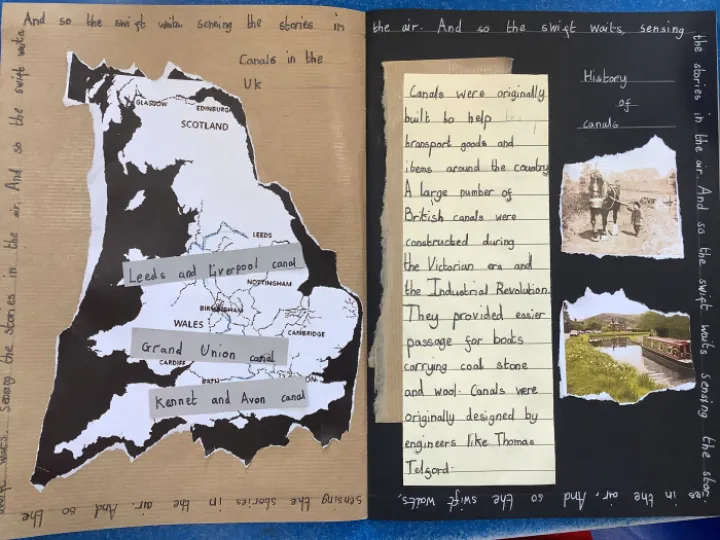 And so the swift waits sensing the stories in the air. And so the swift waits, sensing
the stories in the air. And so the swift waits sensing the stor
ies in the air. And so the swift waits,
sensing the stories in the air. And so the
swift waits, sensing the stories in the air. And so the swift waits
Canals in the
UK
GLASGOW
EDINBURGH
SCOTLAND
LEEDS
Leeds and Liverpool canal
NOTTINGHAM
BIRMINGHAM
WALES
CAMBRIDGE
Grand Union canal
CARDIFF
BATH
Kennet and Avon canal
Canals were originally
built to help
transport goods and
items around the country
A large number of
British canals were
constructed during
the Victorian era and
the Industrial Revolution.
They provided easier
passage for boats
carrying coal stone
and wool. Canals were
originally designed by
engineers like Thomas
Telford.
History
of
canals